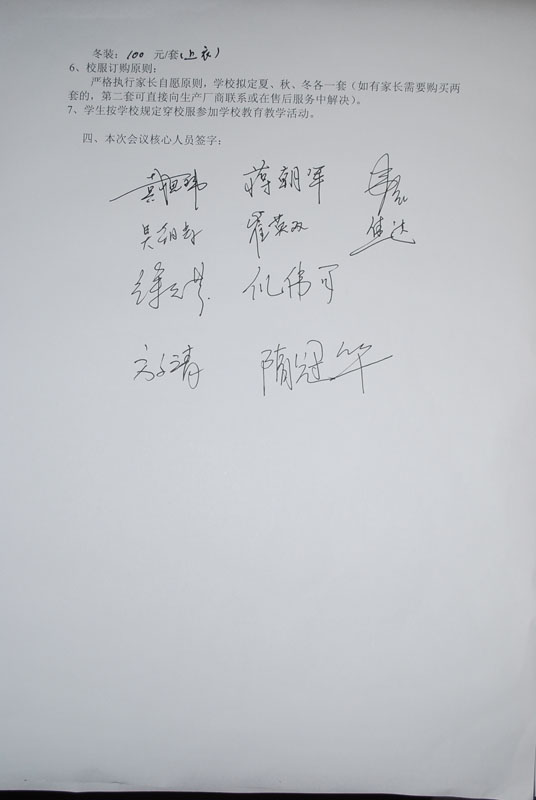 冬装：100 元/套（上衣）
6、校服订购原则：
严格执行家长自愿原则，学校拟定夏、秋、冬各一套（如有家长需要购买两
套的，第二套可直接向生产厂商联系或在售后服务中解决）。
7、学生按学校规定穿校服参加学校教育教学活动。
四、本次会议核心人员签字：
蒋朝军
崔英双
仇伟
隋冠华